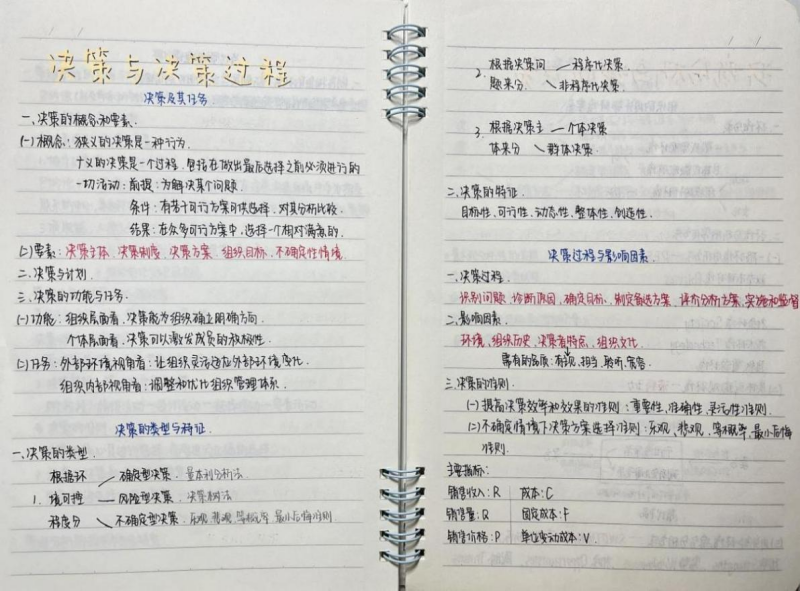 决策与决策过程
决策及其任务
一、决策的概念和要素.
(一)概念: 狭义的决策是一种行为.
广义的决策是一个过程, 包括在做出最后选择之前必须进行的
一切活动: 前提: 为解决某个问题
条件: 有若干可行方案可供选择, 对其分析比较.
结果: 在众多可行方案中, 选择一个相对满意的.
(二)要素: 决策主体、决策制度、决策方案、组织目标、不确定性情境.
二、决策与计划.
三、决策的功能与任务.
(一)功能: 组织层面看, 决策能为组织确立明确方向.
个体层面看, 决策可以激发成员的积极性.
(二)任务: 外部环境视角看: 让组织灵活适应外部环境变化.
组织内部视角看: 调整和优化组织管理体系.
决策的类型与特征.
一、决策的类型.
根据环 确定型决策. 量本利分析法.
1. 境可控 风险型决策. 决策树法
程度分 不确定型决策. 乐观 悲观 等概率 最小后悔准则
2. 根据决策问 程序化决策.
题来分 非程序化决策.
3. 根据决策主 个体决策
体来分 群体决策.
二、决策的特征.
目标性、可行性、动态性、整体性、创造性.
决策过程与影响因素
一、决策过程.
识别问题、诊断原因、确定目标、制定备选方案、评价分析方案、实施和监督
二、影响因素.
环境、组织历史、决策者特点、组织文化.
需有的品质: 有主见、担当、聆听、宽容.
三、决策的准则.
(一)提高决策效率和效果的准则: 重要性、准确性、灵活性准则.
(二)不确定情境下决策方案选择准则: 乐观、悲观、等概率、最小后悔
准则.
主要指标:
销售收入: R 成本: C
销售量: Q 固定成本: F
销售价格: P 单位变动成本: V